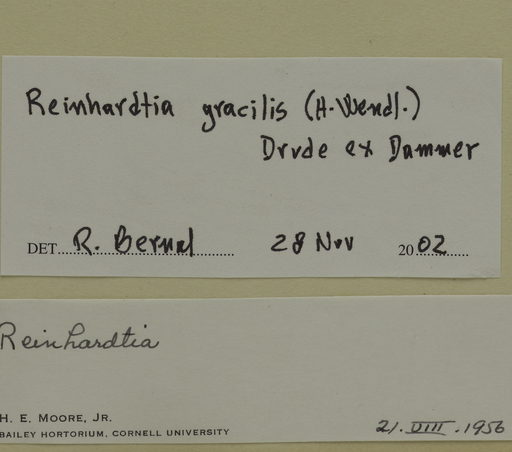 Reinhardtia gracilis (H. Wendl.)
Drude ex Dammer
DET. R. Bernal 28 Nov 2002
Reinhardtia
H. E. MOORE, JR.
BAILEY HORTORIUM, CORNELL UNIVERSITY 21. VIII. 1956